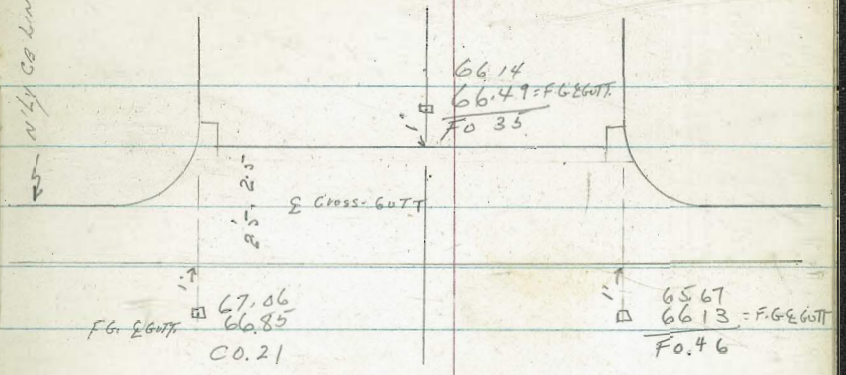 N'LY CB LIN
66.14
66.49 = F G ℄ GUTT.
F0.35
1'
2.5'
2.5'
℄ CROSS-GUTT.
1'
67.06
F G. ℄ GUTT. 66.85
C 0.21
1'
65.67
66.13 = F.G ℄ GUTT
F0.46